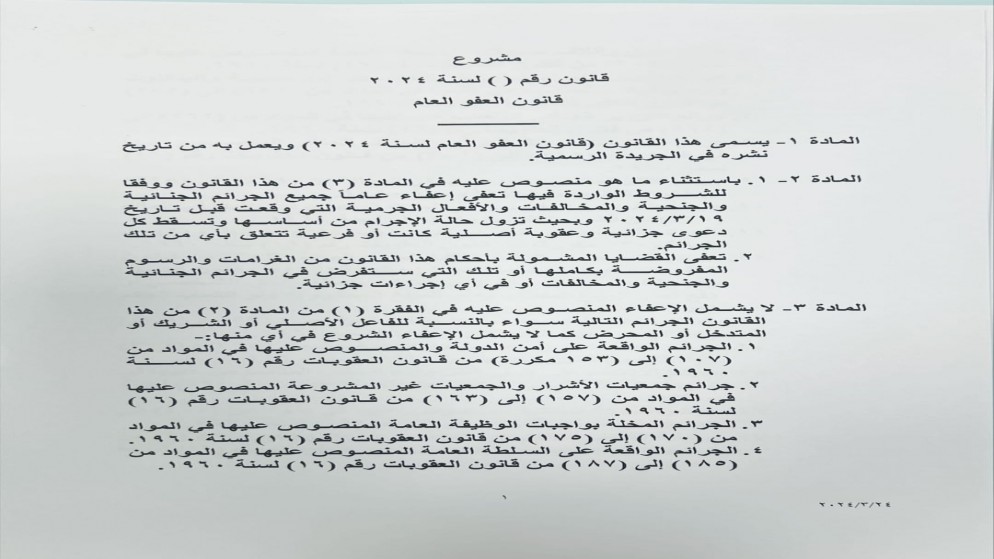 مشروع
قانون رقم ( ) لسنة ٢٠٢٤
قانون العفو العام
المادة ١- يسمى هذا القانون (قانون العفو العام لسنة ٢٠٢٤) ويعمل به من تاريخ
نشره في الجريدة الرسمية.
المادة ٢- ١. باستثناء ما هو منصوص عليه في المادة (٣) من هذا القانون ووفقا
للشروط الواردة فيها تعفى إعفاء عاماً جميع الجرائم الجنائية
والجنحية والمخالفات والأفعال الجرمية التي وقعت قبل تاريخ
٢٠٢٤/٣/١٩ وبحيث تزول حالة الإجرام من أساسها وتسقط كل
دعوى جزائية وعقوبة أصلية كانت أو فرعية تتعلق بأي من تلك
الجرائم.
٢. تعفى القضايا المشمولة بأحكام هذا القانون من الغرامات والرسوم
المفروضة بكاملها أو تلك التي ستفرض في الجرائم الجنائية
والجنحية والمخالفات أو في أي إجراءات جزائية.
المادة ٣- لا يشمل الإعفاء المنصوص عليه في الفقرة (١) من المادة (٢) من هذا
القانون الجرائم التالية سواء بالنسبة للفاعل الأصلي أو الشريك أو
المتدخل أو المحرض كما لا يشمل الإعفاء الشروع في أي منها:-
١. الجرائم الواقعة على أمن الدولة والمنصوص عليها في المواد من
(١٠٧) إلى (١٥٣ مكررة) من قانون العقوبات رقم (١٦) لسنة
١٩٦٠.
٢. جرائم جمعيات الأشرار والجمعيات غير المشروعة المنصوص عليها
في المواد من (١٥٧) إلى (١٦٣) من قانون العقوبات رقم (١٦)
لسنة ١٩٦٠.
٣. الجرائم المخلة بواجبات الوظيفة العامة المنصوص عليها في المواد
من (١٧٠) إلى (١٧٥) من قانون العقوبات رقم (١٦) لسنة ١٩٦٠.
٤. الجرائم الواقعة على السلطة العامة المنصوص عليها في المواد من
(١٨٥) إلى (١٨٧) من قانون العقوبات رقم (١٦) لسنة ١٩٦٠.
١
٢٠٢٤/٣/٢٤